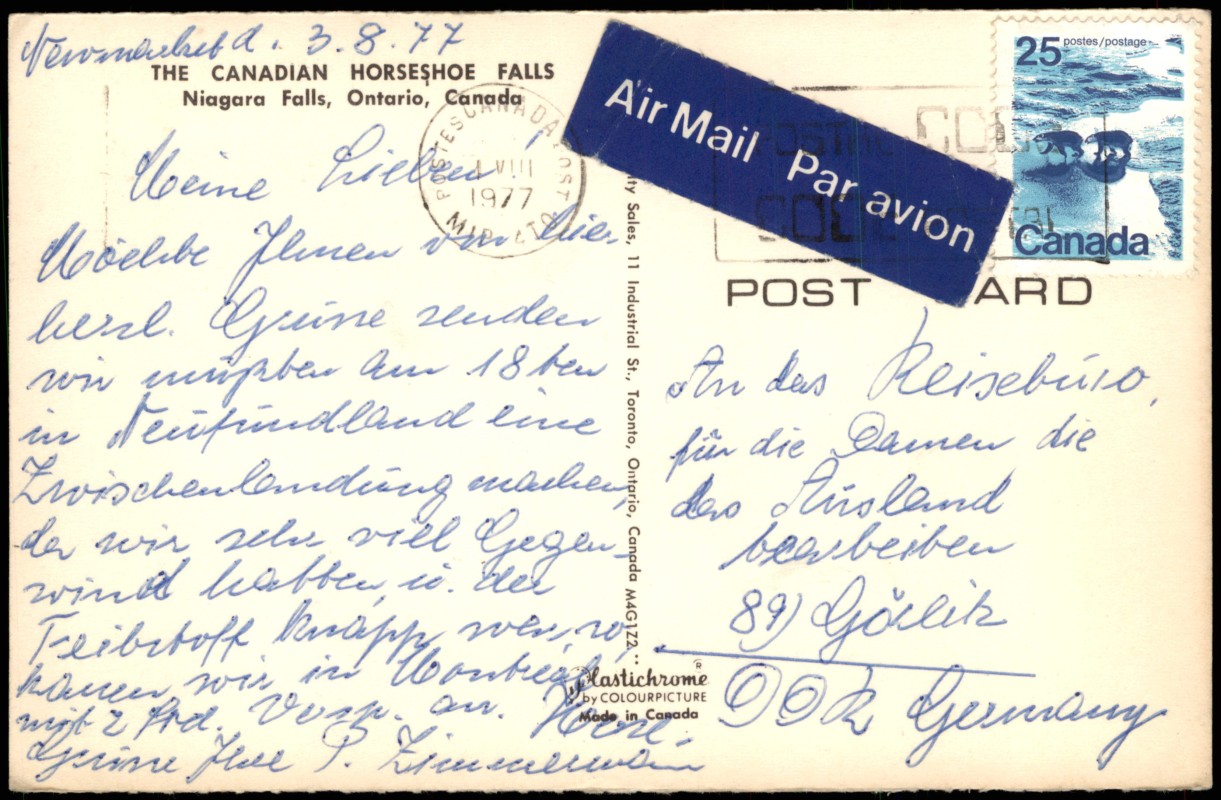 Newmarket d. 3.8.77
THE CANADIAN HORSESHOE FALLS
Niagara Falls, Ontario, Canada
Meine Lieben!
Möchte Ihnen von hier
herzl. Grüße senden
wir mußten am 18ten
in Neufundland eine
Zwischenlandung machen,
da wir sehr viel Gegen-
wind hatten, u. der
Treibstoff knapp war, so
kamen wir in Montreal
mit 2 Std. Versp. an. Herzl.
Grüße Ihre P. Zimmermann
POSTES CANADA POST
VIII
1977
Air Mail Par avion
25 postes/postage
Canada
POST CARD
An das Reisebüro,
für die Damen die
das Ausland
bearbeiten
89) Görlitz
DDR Germany
ty Sales, 11 Industrial St., Toronto, Ontario, Canada M4G1Z2
Plastichrome ®
by COLOURPICTURE
Made in Canada